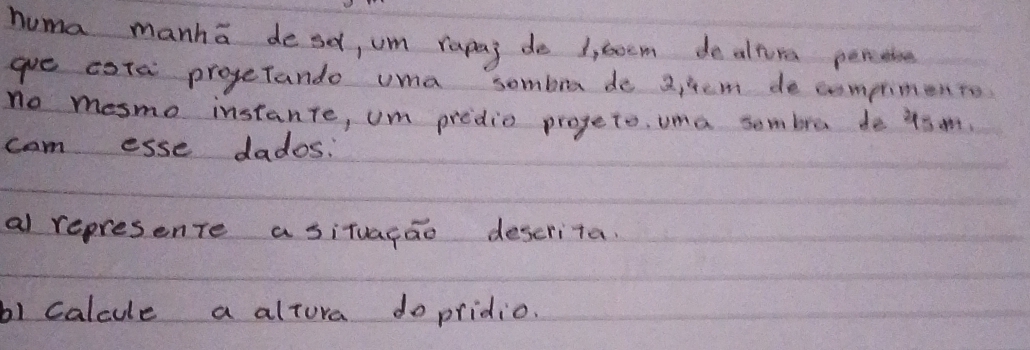 numa manhã de sol, um rapaz de 1,60cm de altura percebe
que está projeTando uma sombra de 2,4cm de comprimenTo.
no mesmo instanTe, um prédio projeto. uma sombra de 45m.
com esse dados:
a) represenTe a siTuação descriTa.
b) calcule a alTura do pridio.